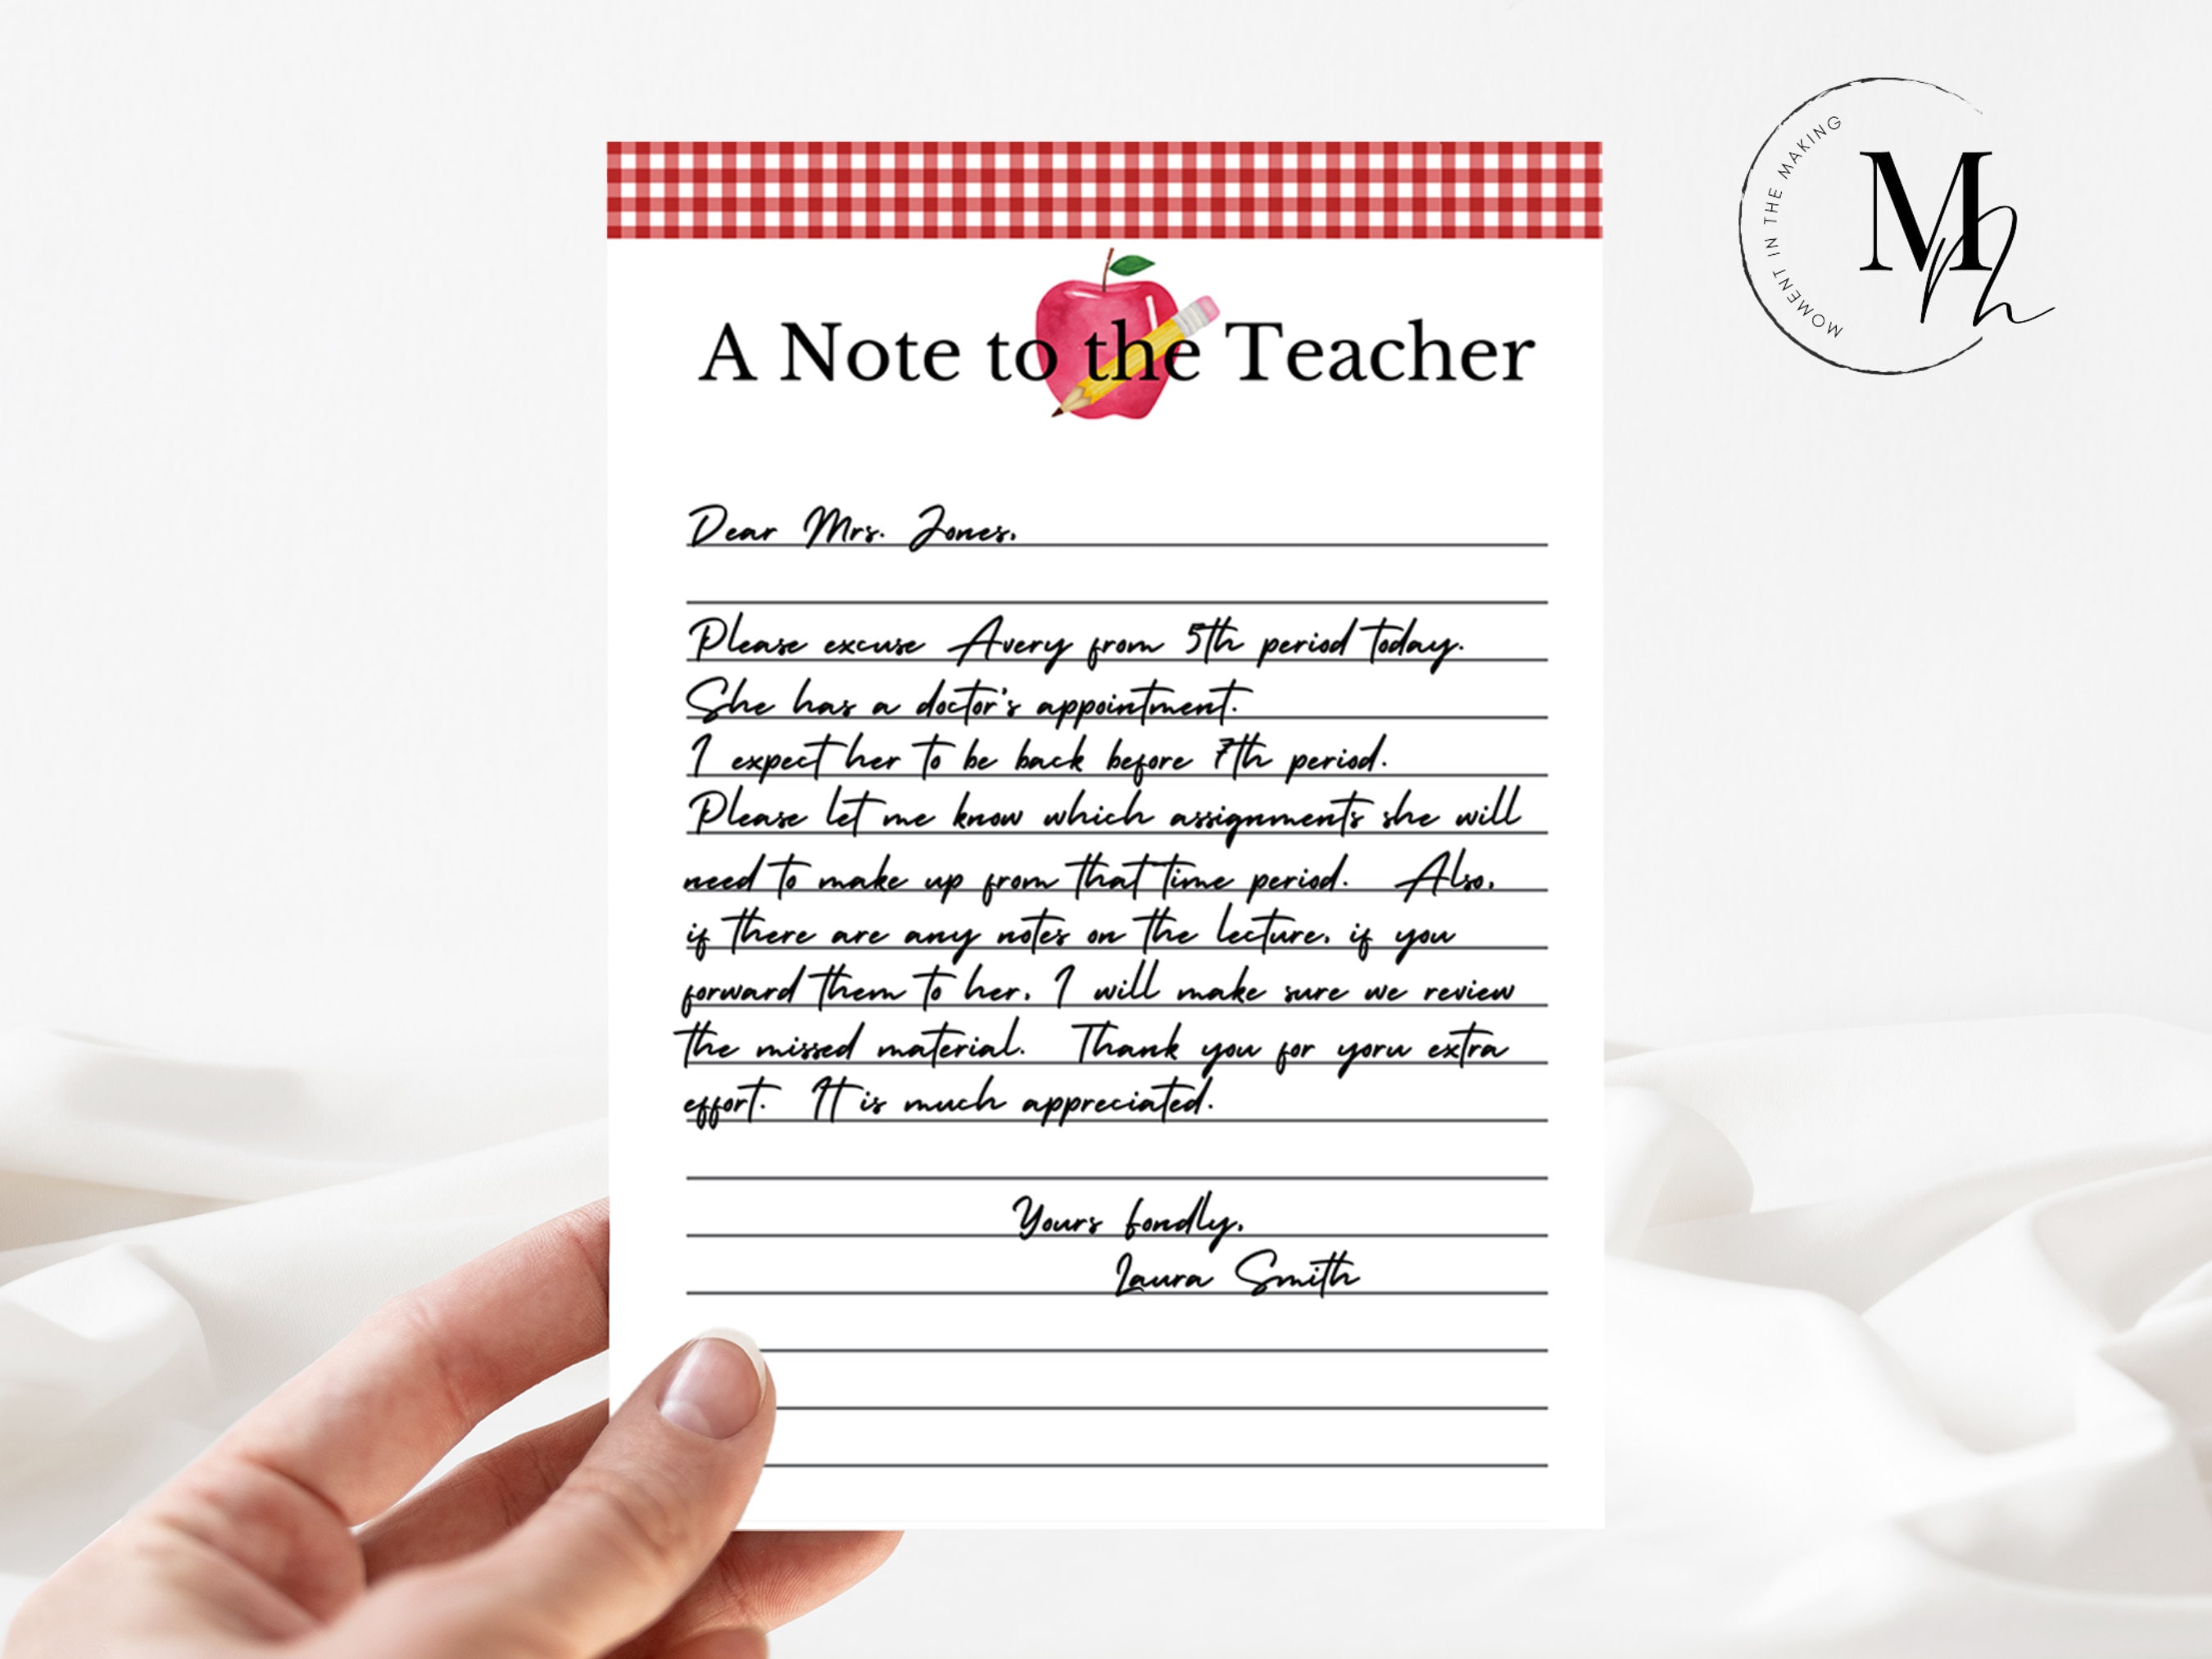 A Note to the Teacher
Dear Mrs. Jones,
Please excuse Avery from 5th period today.
She has a doctor's appointment.
I expect her to be back before 7th period.
Please let me know which assignments she will
need to make up from that time period. Also,
if there are any notes on the lecture, if you
forward them to her, I will make sure we review
the missed material. Thank you for yoru extra
effort. It is much appreciated.
Yours fondly,
Laura Smith
MOMENT IN THE MAKING
Mm